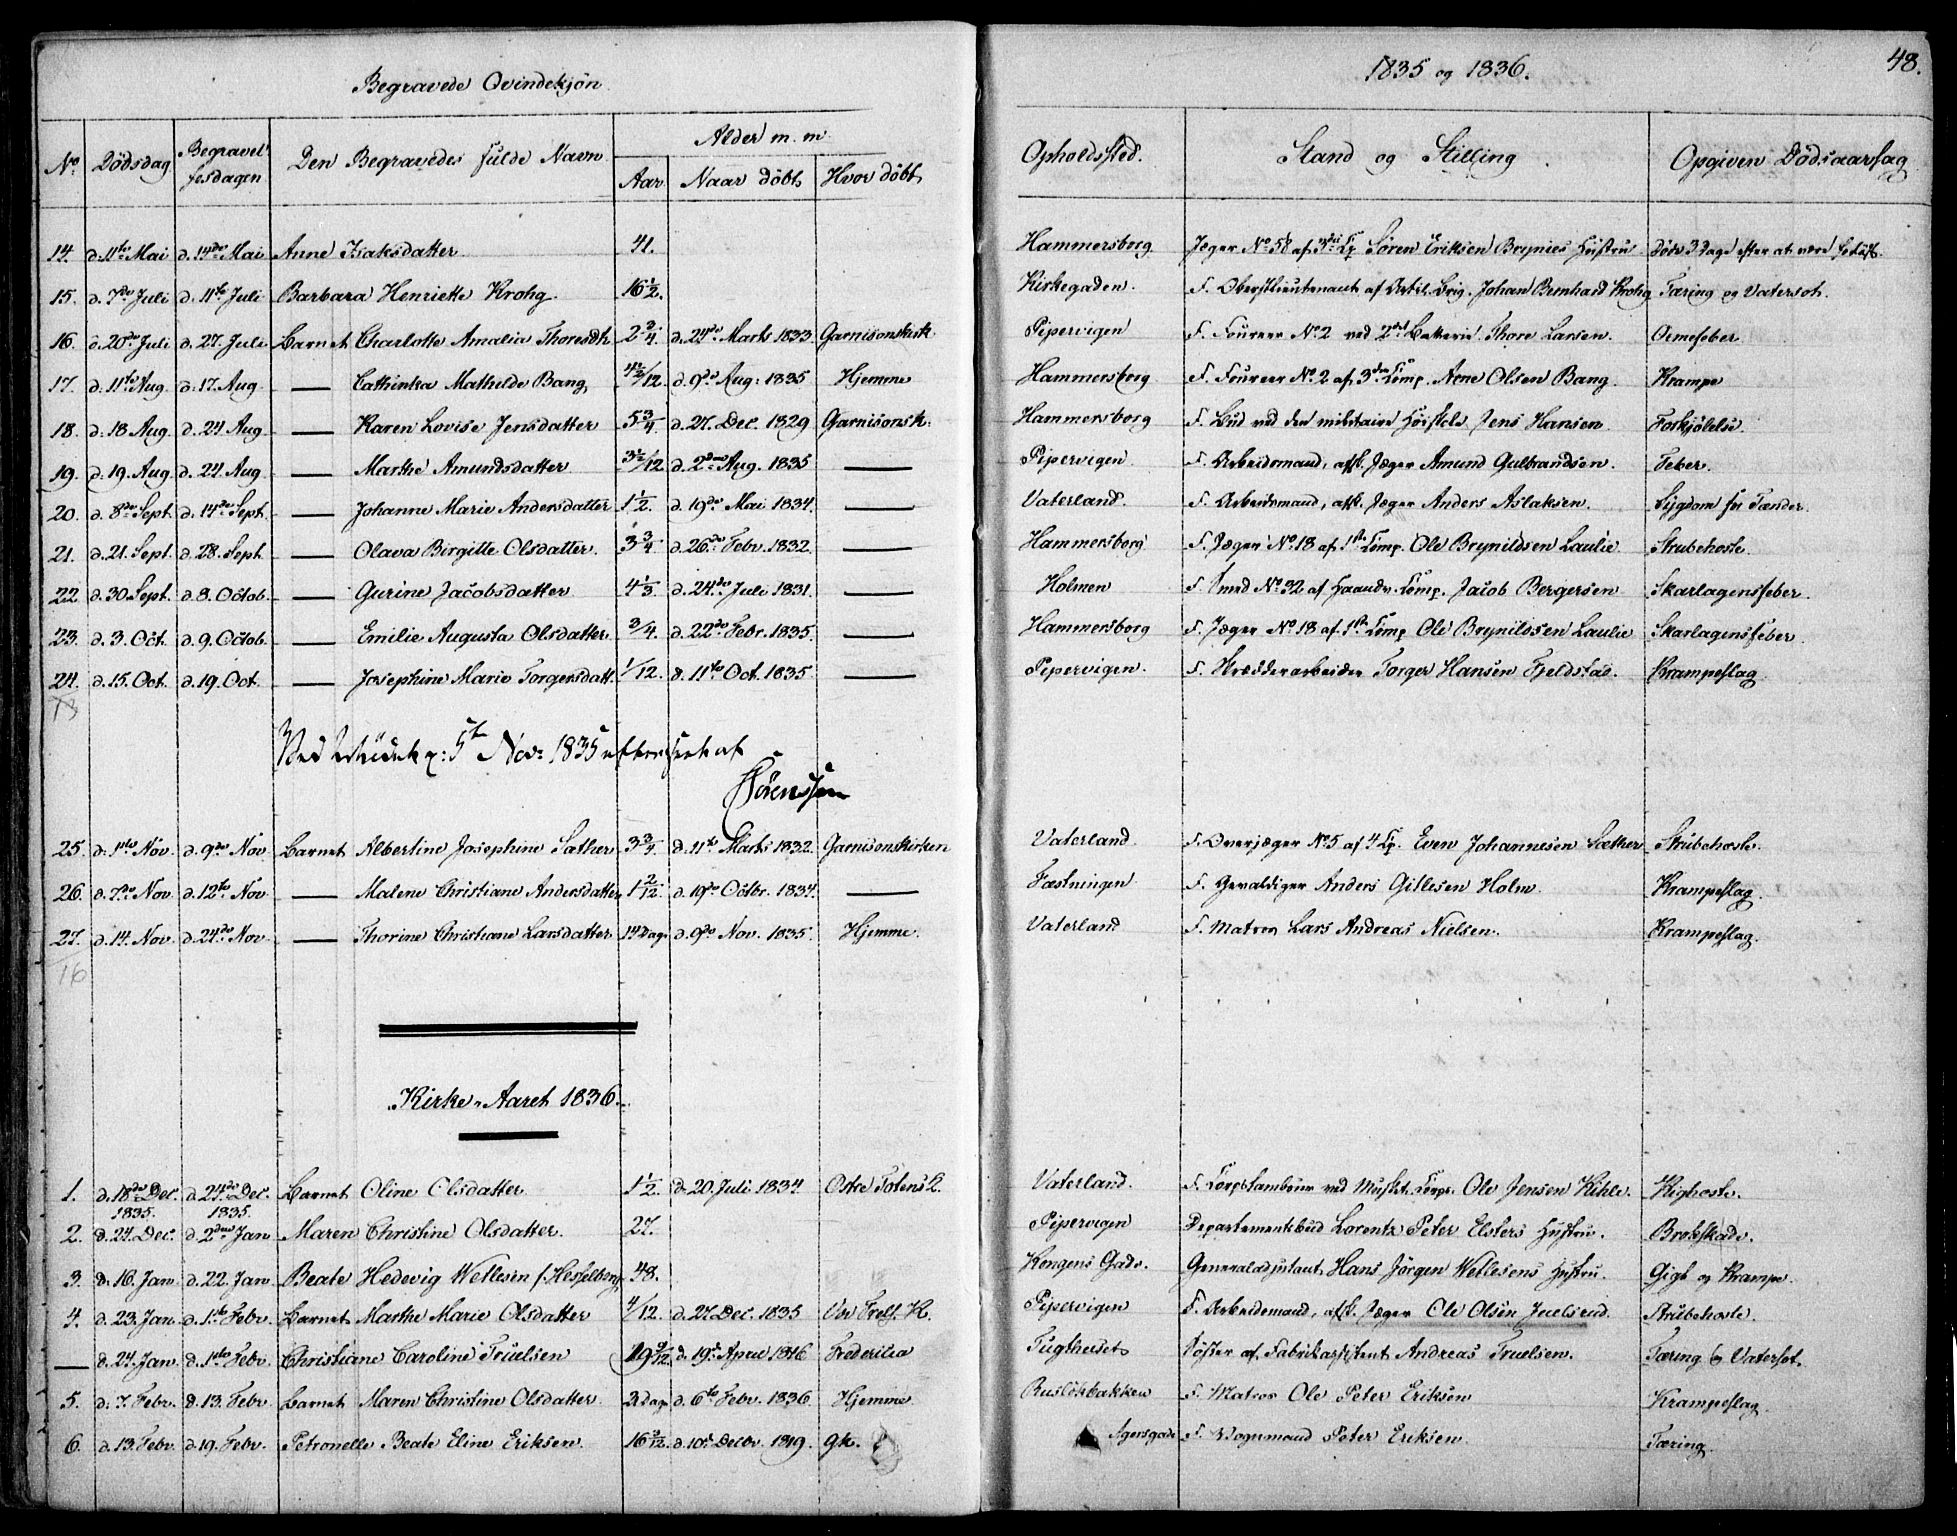 Begravede Qvindekjön
1835 og 1836.
48.
No Dödsdag Begravelsesdagen Den Begravedes fulde Navn Alder m. m. Opholdssted. Stand og Stilling Opgiven Dödsaarsag
Aar Naar döbt Hvor döbt
14. d. 11te Mai d. 14de Mai Anne Isaksdatter 41. Hammersborg Jæger No 58 af Cp. Sören Eriksen Brynies Hustru Döde 3 dage efter at være forlöst.
15. d. 7de Juli d. 11te Juli Barbara Henriette Krohg 16 1/2. Kirkegaden. F. Oberstlieutenant af Artil. Brig. Johan Bernhard Krohg Tæring og Vatersot.
16. d. 20de Juli d. 27. Juli Barnet Charlotte Amalia Thoresdtr. 2 2/4. d. 24de Marts 1833 Garnisonskirk. Pipervigen F. Foureer No 2 ved 2det Batterie Thore Larsen. Ormefeber
17. d. 11te Aug. d. 17. Aug — Cathinka Mathilde Bang 4 1/2/12 d. 9de Aug: 1835 Hjemme Hammersborg F. Foureer No 2 af 3die Comp. Arne Olsen Bang. Krampe
18. d. 18 Aug. d. 24 Aug — Karen Lovise Jensdatter 5 3/4. d. 27. Dec. 1829 Garnisonsk. Hammersborg F. Bud ved den militaire Höiskole Jens Hansen Forkjölelse.
19. d. 19. Aug. d. 24. Aug — Marthe Amundsdatter 3 1/2/12 d. 2den Aug. 1835 — Pipervigen F. Arbeidsmand, afsk. Jæger Amund Gulbrandsen. Feber.
20. d. 8de Sept. d. 14de Sept. — Johanne Marie Andersdatter 1 1/2. d. 19de Mai 1834. — Vaterland. F. Arbeidsmand, afsk. Jæger Anders Aslaksen. Sygdom for Tænder.
21. d. 21. Sept. d. 28. Sept — Olava Birgitte Olsdatter. 3 3/4 d. 26de Febr. 1832. — Hammersborg F. Jæger No 18 af 1ste Comp. Ole Brynildsen Laulie Strubehoste.
22 d. 30 Sept. d. 8. Octob. — Gurine Jacobsdatter 4 1/3. d. 24de Juli 1831. — Holmen F. Smed No 32 af Haandv. Comp. Jacob Bergersen Skarlagensfeber.
23. d. 3. Oct. d. 9. Octob. — Emilie Augusta Olsdatter. 3/4. d. 22de Febr. 1835. — Hammersborg F. Jæger No 18 af 1ste Comp Ole Brynildsen Laulie Skarlagensfeber.
24. d. 15. Oct. d. 19. Oct. — Josephine Marie Torgersdatt. 1/12. d. 11te Oct. 1835. — Pipervigen. F. Skrædderarbeider Torger Hansen Fjeldstad. Krampeslag
13
Ved 5te Nov: 1835 efterseet af
Sörenssen
25. d. 1ste Nov. d. 9de Nov Barnet Albertine Josephine Sæther 3 3/4. d. 11te Marts 1832. Garnisonskirken Vaterland. F. Overjæger No 5 af 4 Cp. Even Johannesen Sæther Strubehoste.
26 d. 7de Nov. d. 12te Nov — Malene Christiane Andersdatter 1 2/12. d. 19de Octbr. 1834. — Fæstningen F. Gevaldiger Anders Gillesen Holm. Krampeslag.
27. d. 14. Nov. d. 24de Nov — Thorine Christiane Larsdatter 14 Dage d. 9de Nov. 1835. Hjemme. Vaterland F. Matros Lars Andreas Nielsen. Krampeslag.
16
Kirke-Aaret 1836.
1. d. 18de Dec. 1835. d. 24de Dec. 1835. Barnet Oline Olsdatter 1 1/2. d. 20. Juli 1834. Ostre Totens P. Vaterland. F. Corpstambour ved Musket. Corps. Ole Jensen Kihle. Kighoste.
2. d. 24. Dec. d. 2den Jan Maren Christine Olsdatter. 27. Pipervigen Departementsbud Lorentz Peter Elsters Hustru. Brokskade.
3. d. 16. Jan d. 22. Jan Beate Hedevig Wetlesen f. Hesselberg 48. Kongens Gade. Generaladjutant Hans Jörgen Wetlesens Hustru. Gigt og Krampe.
4. d. 23. Jan d. 1ste Febr. Barnet Marthe Marie Olsdatter 4/12. d. 27. Dec. 1835 Vor Frels. K. Pipervigen F. Arbeidsmand, afsk. Jæger Ole Olsen Juelsrud. Strubehoste.
— d. 24. Jan d. 1ste Febr. Christiane Caroline Truelsen 19 9/12 d. 19de April 1816 Fredericia Tugthuset Söster af Fabrikassistent Andreas Truelsen. Tæring & Vatersot.
5. d. 7. Febr. d. 13. Febr. Barnet Maren Christine Olsdatter. 2 dage d. 6te Febr. 1836 Hjemme. Ruslökbakken F. Matros Ole Peter Eriksen Krampeslag
6. d. 13. Febr d. 19. Febr. Petronelle Beate Eline Eriksen. 16 2/12 d. 10de Decbr. 1819. Gk. Agersgade F. Vognmand Peter Eriksen Tæring.